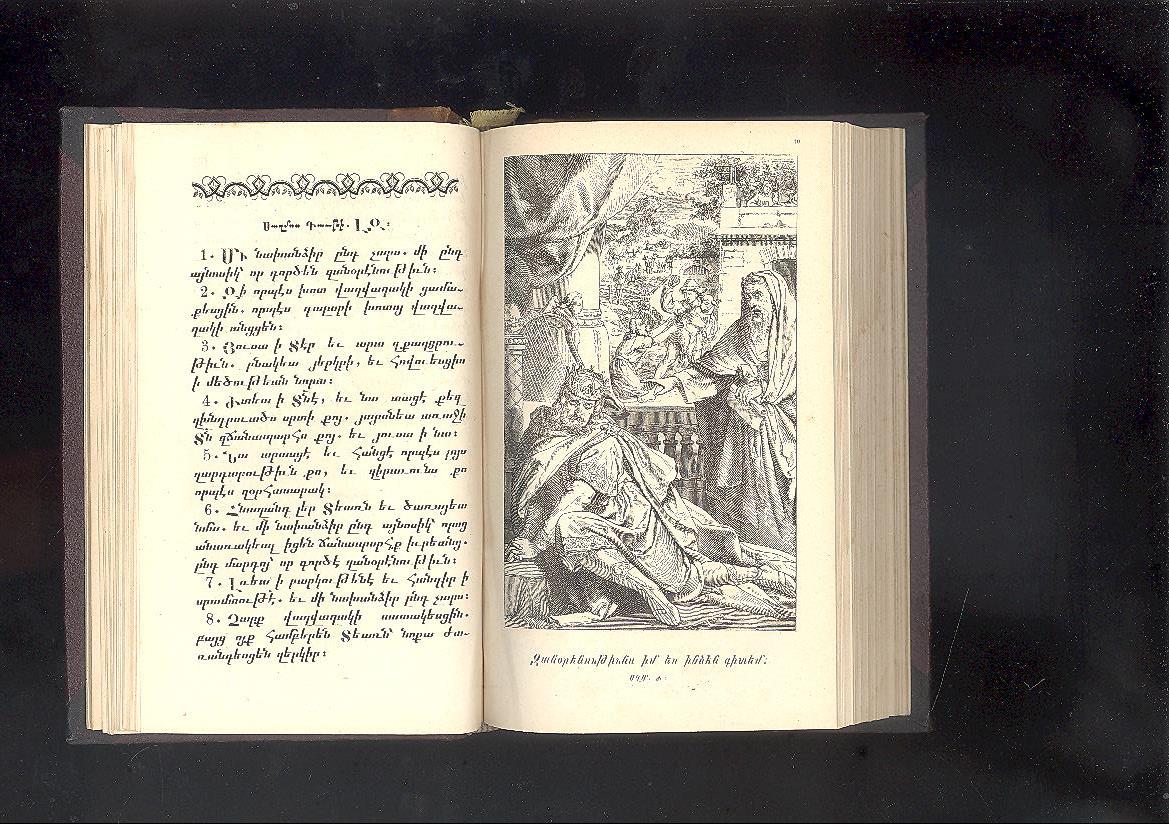 Սաղմոս Դաւթի. ԼԶ:
1. Մի նախանձիր ընդ չարս. մի ընդ
այնոսիկ՝ որ գործեն զանօրէնութիւն:
2. Զի որպէս խոտ վաղվաղակի ցամա֊
քեսցին. որպէս դալարի խոտոյ վաղվա֊
ղակի անցցեն:
3. Յուսա ի Տէր եւ արա զքաղցրու֊
թիւն. բնակեա յերկրի, եւ հովուեսցիս
ի մեծութեան նորա:
4. Խտեա ի Տնէ, եւ նա տացէ քեզ
զխնդրուածս սրտի քոյ. յայտնեա առաջի
Տն զճանապարհս քոյ. եւ յուսա ի նա:
5. Նա արասցէ եւ հանցէ որպէս լոյս
զարդարութիւն քո, եւ զիրաւունս քո
որպէս զօրհասարակ:
6. Հնազանդ լեր Տեառն եւ ծառայեա
նմա. եւ մի նախանձիր ընդ այնոսիկ՝ որոց
յաջողեալ իցեն ճանապարհք իւրեանց.
ընդ մարդոյ՝ որ գործէ զանօրէնութիւն:
7. Լռեա ի բարկութենէ եւ հանդիր ի
սրտմտութէ. եւ մի նախանձիր ընդ չարս:
8. Չարք վաղվաղակի սատակեսցին.
բայց ոյք համբերեն Տեառն՝ նոքա ժա֊
ռանգեսցեն զերկիր:
Զանօրէնութիւնս իմ ես ինձէն գիտեմ:
ՍՂՄ. Ծ: